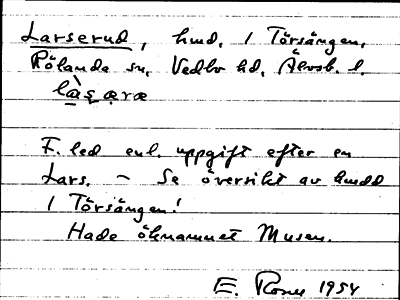 Larserud, hmd. i Törsången,
Rölanda sn, Vedbo hd, Älvsb. l.
là̱s̱æ̱ræ
F. led enl. uppgift efter en
Lars. – Se översikt av hmdd
i Törsången!
Hade öknamnet Musen.
E. 1954